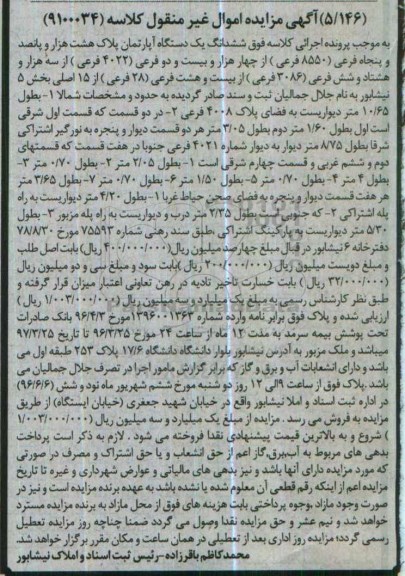 (۵/۱۴۶) آگهی مزایده اموال غیر منقول کلاسه (۹۱۰۰۰۳۴)
به موجب پرونده اجرائی کلاسه فوق ششدانگ یک دستگاه آپارتمان پلاک هشت هزار و پانصد
و پنجاه فرعی (۸۵۵۰ فرعی ) از چهار هزار و بیست و دو فرعی (۴۰۲۲ فرعی ) از سه هزار و
هشتاد و شش فرعی (۳۰۸۶ فرعی ) از بیست و هشت فرعی (۲۸ فرعی ) از ۱۵ اصلی بخش ۵
نیشابور به نام جلال جمالیان ثبت و سند صادر گردیده به حدود و مشخصات شمالا ۱- بطول
۱۰/۶۵ متر دیواریست به فضای پلاک ۴۰۰۸ فرعی ۲- در دو قسمت که قسمت اول شرقی
است اول بطول ۱/۶۰ متر دوم بطول ۳/۰۵ متر هر دو قسمت دیوار و پنجره به نورگیر اشتراکی
شرقا بطول ۸/۷۵ متر دیوار به دیوار شماره ۴۰۲۱ فرعی جنوبا در هفت قسمت که قسمتهای
دوم و ششم غربی و قسمت چهارم شرقی است ۱- بطول ۲/۰۵ متر ۲- بطول ۰/۷۰ متر ۳-
بطول ۴ متر ۴- بطول ۰/۷۰ متر ۵- بطول ۱/۵۰ متر ۶- بطول ۰/۷۰ متر ۷- بطول ۳/۶۵ متر
هر هفت قسمت دیوار و پنجره به فضای صحن حیاط غربا ۱- بطول ۴/۲۰ متر دیواریست به راه
پله اشتراکی ۲- که جنوبی است بطول ۲/۳۵ متر درب و دیواریست به راه پله مزبور ۳- بطول
۵/۳۰ متر دیواریست به پارکینگ اشتراکی طبق سند رهنی شماره ۷۵۵۹۳ مورخ ۷۸/۸/۳۰
دفترخانه ۶ نیشابور در قبال مبلغ چهارصد میلیون ریال (۴۰۰/۰۰۰/۰۰۰ ریال) بابت اصل طلب
و مبلغ دویست میلیون ریال (۲۰۰/۰۰۰/۰۰۰ ریال) بابت سود و مبلغ سی و دو میلیون ریال
(۳۲/۰۰۰/۰۰۰ ریال ) بابت خسارت تاخیر تادیه در رهن تعاونی اعتبار میزان قرار گرفته و
طبق نظر کارشناس رسمی به مبلغ یک میلیارد و سه میلیون ریال (۱/۰۰۳/۰۰۰/۰۰۰ ریال )
ارزیابی شده و پلاک فوق برابر نامه وارده شماره ۱۳۹۶۰۰۱۳۶۳ مورخ ۹۶/۴/۳ بانک صادرات
تحت پوشش بیمه سرمد به مدت ۱۲ ماه از ساعت ۲۴ مورخ ۹۶/۳/۲۵ تا تاریخ ۹۷/۳/۲۵
میباشد و ملک مزبور به آدرس نیشابور بلوار دانشگاه دانشگاه ۱۷/۶ پلاک ۲۵۳ طبقه اول می
باشد و دارای انشعابات آب و برق و گاز که برابر گزارش مامور اجرا در تصرف جلال جمالیان می
باشد .پلاک فوق از ساعت ۹ الی ۱۲ روز دو شنبه مورخ ششم شهریور ماه نود و شش (۹۶/۶/۶)
در اداره ثبت اسناد و املا نیشابور واقع در خیابان شهید جعفری (خیابان ایستگاه) از طریق
مزایده به فروش می رسد . مزایده از مبلغ یک میلیارد و سه میلیون ریال (۱/۰۰۳/۰۰۰/۰۰۰
) شروع و به بالاترین قیمت پیشنهادی نقدا فروخته می شود . لازم به ذکر است پرداخت
بدهی های مربوط به آب،برق،گاز اعم از حق انشعاب و یا حق اشتراک و مصرف در صورتی
که مورد مزایده دارای آنها باشد و نیز بدهی های مالیاتی و عوارض شهرداری و غیره تا تاریخ
مزایده اعم از اینکه رقم قطعی آن معلوم شده یا نشده باشد به عهده برنده مزایده است و نیز در
صورت وجود مازاد ،وجوه پرداختی بابت هزینه های فوق از محل مازاد به برنده مزایده مسترد
خواهد شد و نیم عشر و حق مزایده نقدا وصول می گردد ضمنا چناچه روز مزایده تعطیل
رسمی گردد؛ مزایده روز اداری بعد از تعطیلی در همان ساعت و مکان مقرر برگزار خواهد شد.
محمدکاظم باقرزاده-رئیس ثبت اسناد و املاک نیشابور